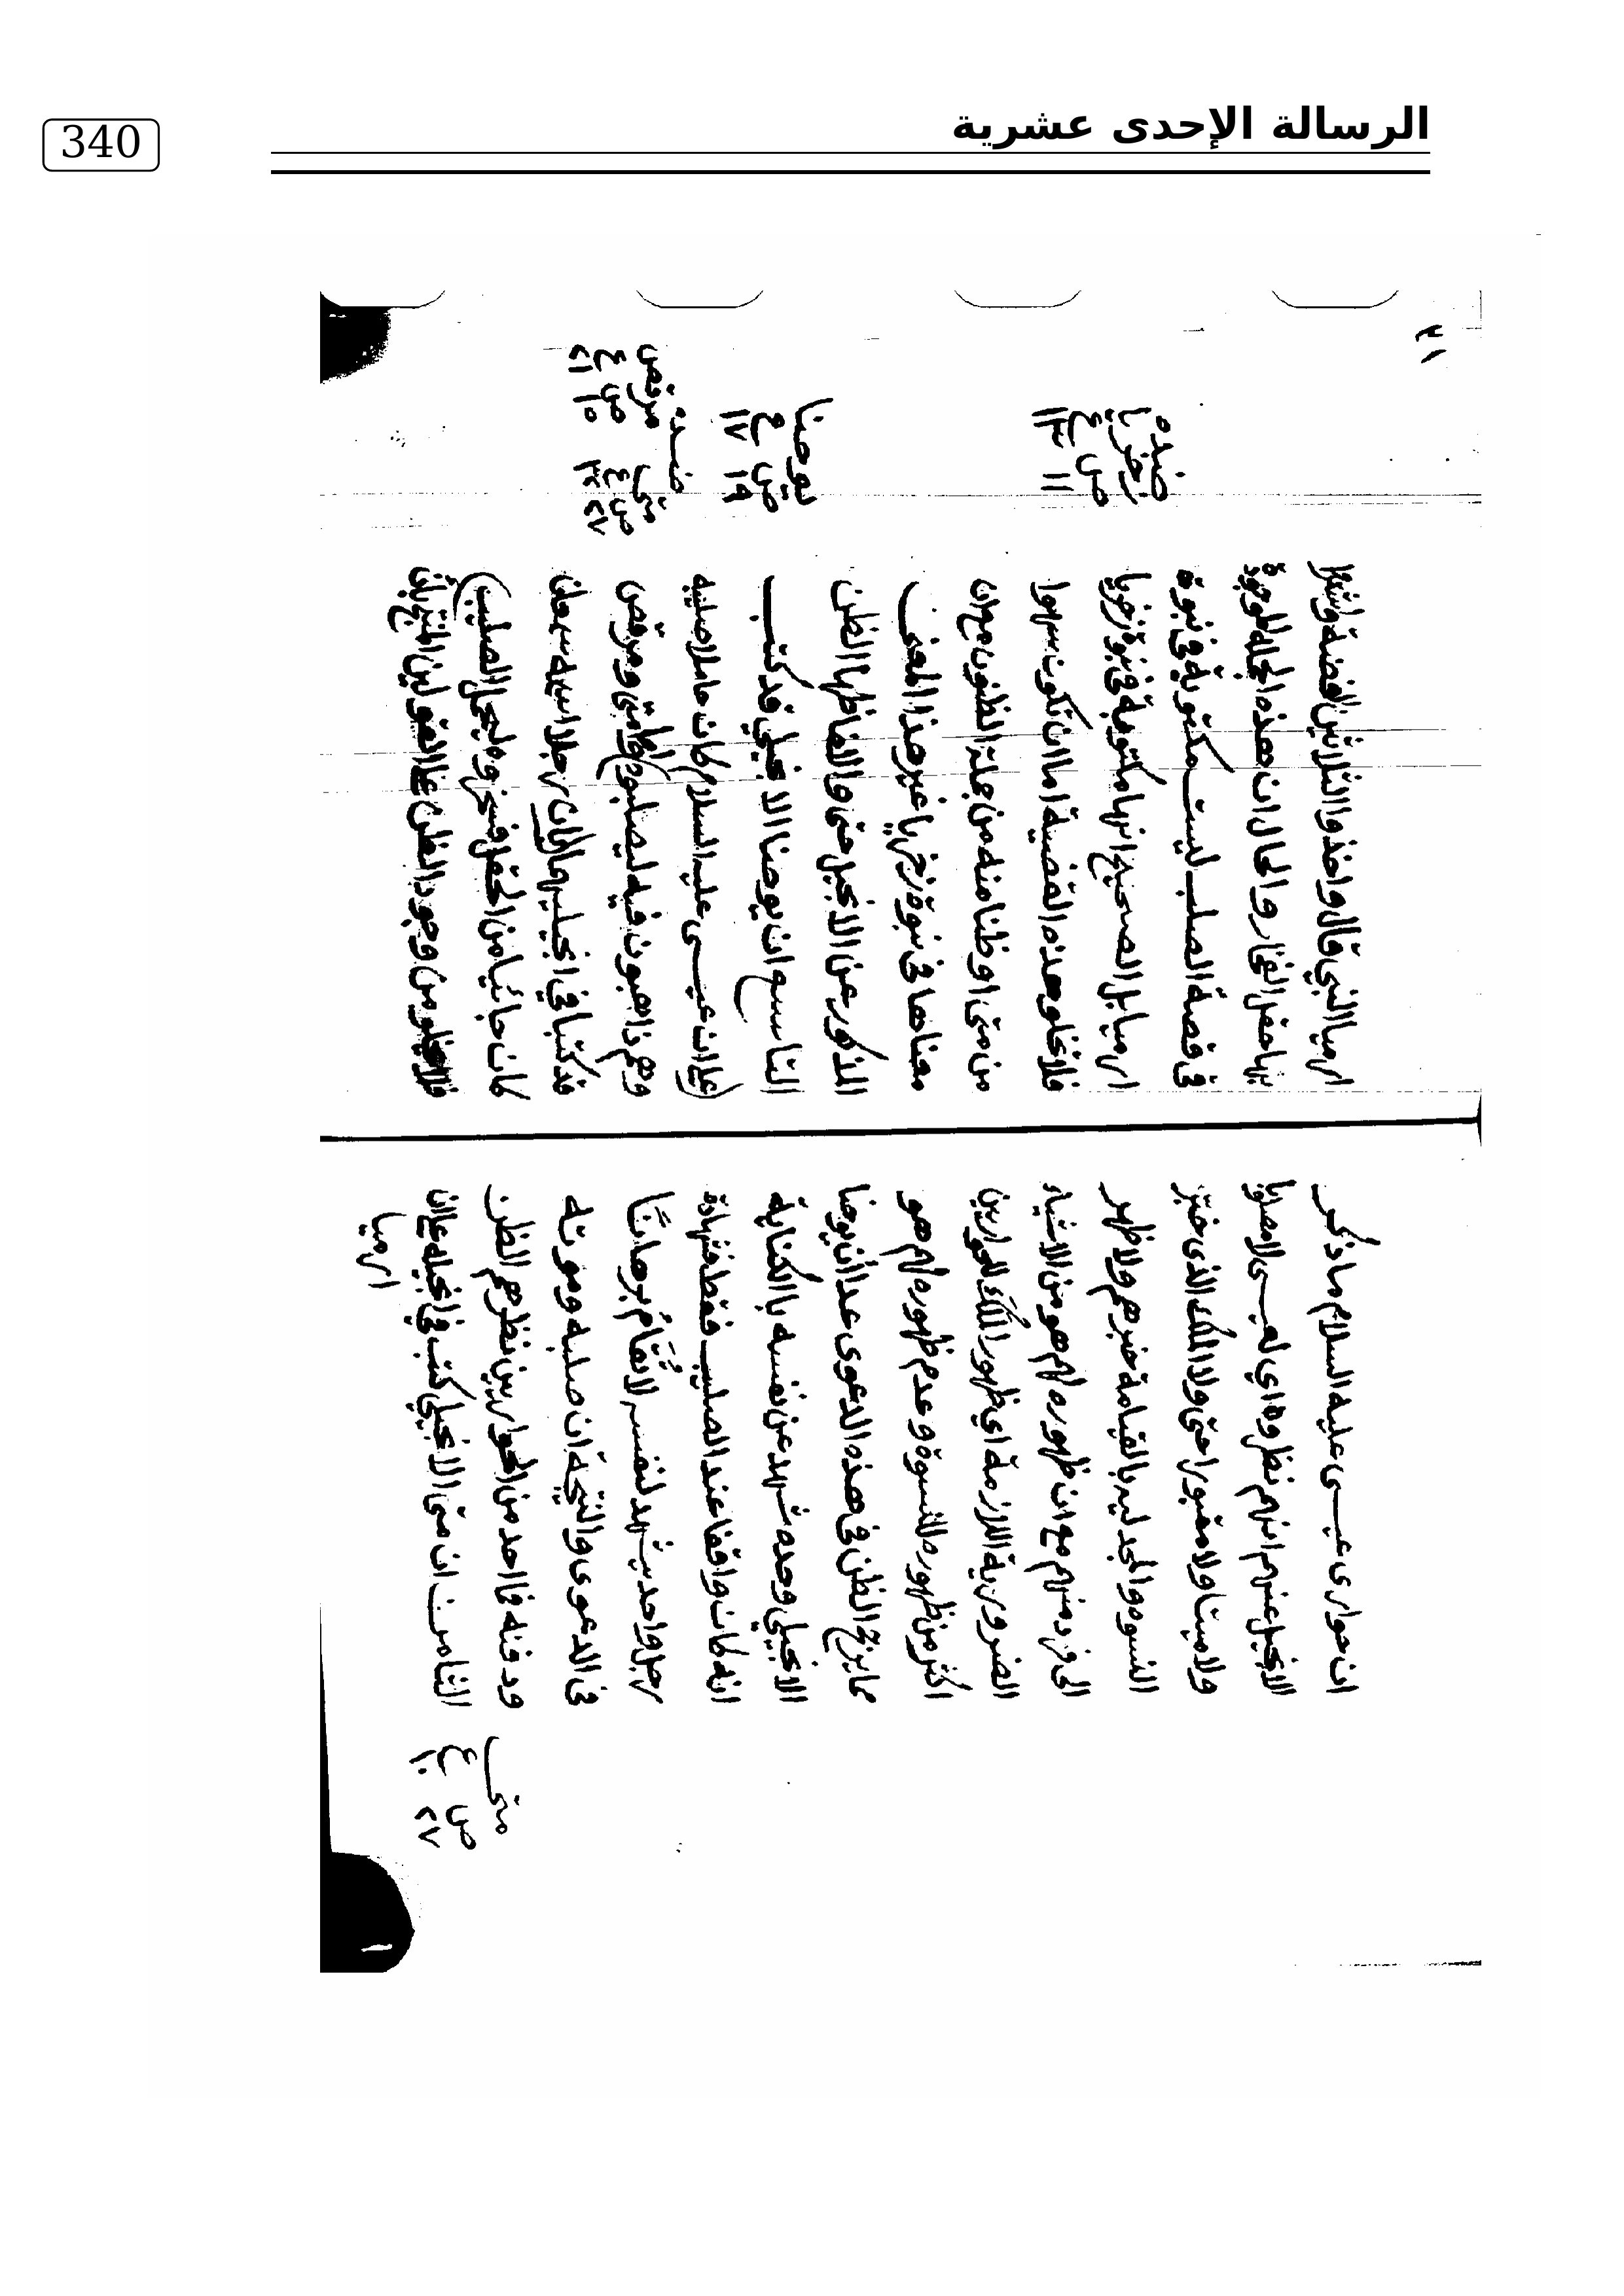 الرسالة الإحدى عشرية
340
ان حواري عيسى عليه السلام ما ذكر
الانجيل عنهم انهم نظروه اي لعيسى لا مصلوبا
ولا ميتا ولا مقبورا حتى ولا ذلك الذي خبّر
النسوه والمجدليه بالقيامة خبرهم ولا ظهر
الى فرد منهم مع ان ظهوره لهم هو من الاشياء
الضرورية اللازمة اي ظهور الملاك للحواريين
اكثر من ظهوره للنسوة وعدم ظهوره لهم هو
مما يرجح الظن في هذه الدعوى عدا أن يوحنا
الانجيلي وحده شهد عن نفسه بالكناية
انه كان واقفا عند الصليب فقط فشهادة
رجل واحد يشهد لنفسه لا تُقام برهانًا
في الدعوى والنتيجة أن صلبه وموته
ودفنه فما احد من الحواريين نظرهم الظن
الثامن ان متى الانجيلي كتب في انجيله على ان
ارميا
متى
ص ع
٢٧ ١٠
٢١
ارميا النبي قال واخذوا الثلاثين الفضة
بها حقل الفخار والحال ان هذه الجمله الموجودة
في قصة الصلب ليست مكتوبة في نبوة
ارميا بل الصحيح انها مكتوبة في نبوة زخريا
فلا تخلو هذه القضية اما ان تكون سهوا
من متى او ظنا منه من جملة الظنون مع ان
معناها في نبوة زخريا غير هذا المعنى
المذكور عن الانجيل متى والفاظها الظن
التاسع ان يوحنا الانجيلي قد كتب
(على ان عيسى عليه السلام كان حاملا صليبه
وهم ذاهبون فيه ليصلبوه) واما متى ومرقص
قد كتبا في انجيليهما (بان رجلا اسمه سمعان
كان جائيا من الحقل فسخروه ليحمل الصليب)
فلا يخلو من وجود الظن على القولين
ضده
زخريا
ص ع
١١ ١٣
يوحنا
ص ع
١٩ ١٧
ضده
متى مرقص
ص ع ص ع
٢٧ ٣٢ ١٥ ٢١